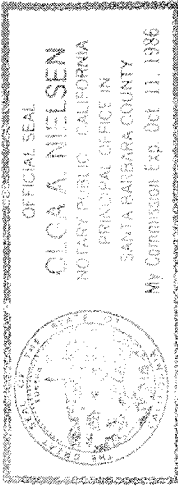 OFFICIAL SEAL
OLGA A. NIELSEN
NOTARY PUBLIC - CALIFORNIA
PRINCIPAL OFFICE IN
SANTA BARBARA COUNTY
My Commission Exp. Oct. 11, 1986